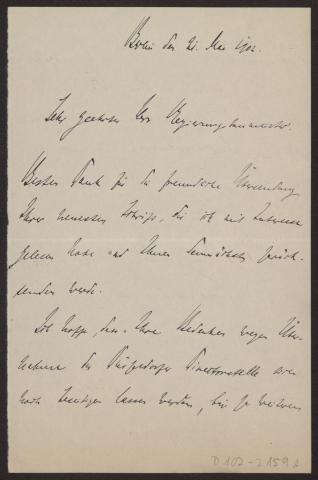 Berlin den 21. Mai 1902.
Sehr geehrter Herr Regierungsbaumeister.
Besten Dank für die freundliche Übersendung
Ihrer neuesten Schrift, die ich mit Interesse
gelesen habe und Ihnen demnächst zurück-
senden werde.
Ich hoffe, dass Ihre Bedenken wegen Über-
nahme der Düsseldorfer Direktorstelle sich
noch beseitigen lassen werden, bin ja
D 102-2159 1